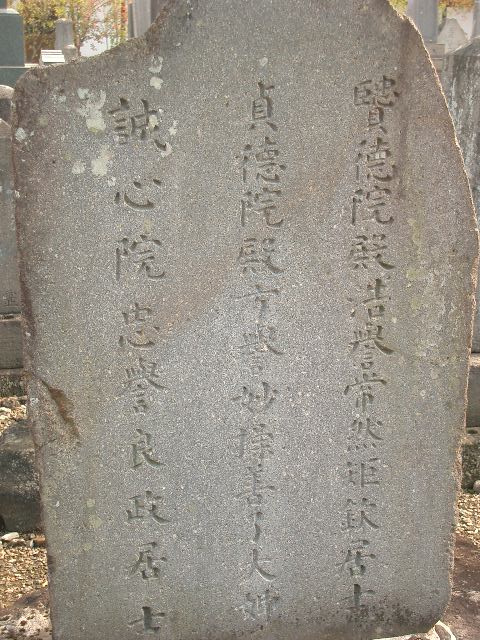 賢德院殿浩譽常然居士
貞德院殿譽妙善大姉
誠心院忠譽良政居士